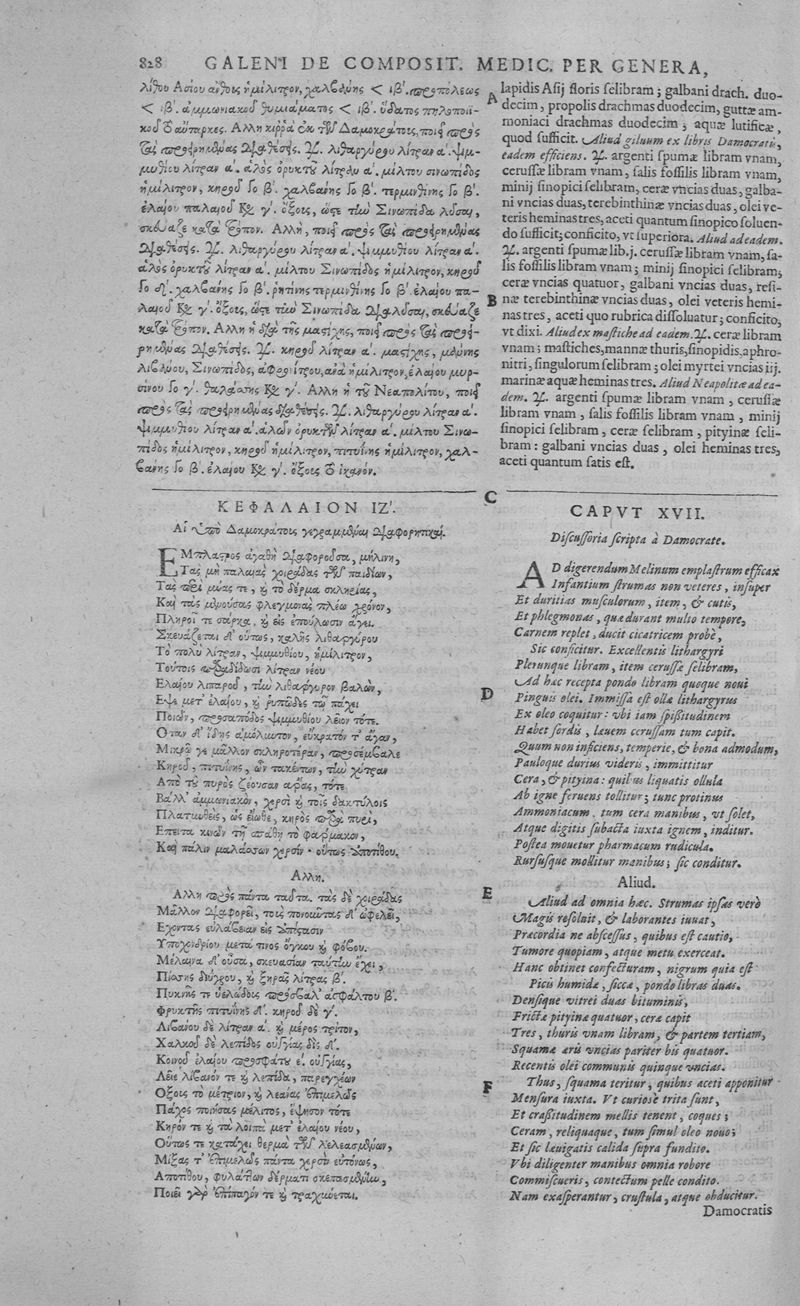 828 GALENI DE COMPOSIT. MEDIC. PER GENERA,
λίθου Ασίου ἄνθους ἡμίλιτρον, χαλβάνης < ιβʹ. προπόλεως
< ιβʹ. ἀμμωνιακοῦ θυμιάματος < ιβʹ. ὕδατος πηλοποιϊ-
κοῦ τὸ αὔταρκες. Αλλη κιῤῥὰ ἐκ τῶν Δαμοκράτους, ποιεῖ πρὸς
τὰς προειρημένας διαθέσεις. ♃. λιθαργύρου λίτραν αʹ. ψιμ-
μυθίου λίτραν αʹ. ἁλὸς ὀρυκτοῦ λίτραν αʹ. μίλτου σινωπίδος
ἡμίλιτρον, κηροῦ ΓΟ βʹ. χαλβάνης ΓΟ βʹ. τερμινθίνης ΓΟ βʹ.
ἐλαίου παλαιοῦ Κο γʹ. ὄξους, ὥστε τὴν Σινωπίδα λῦσαι,
σκεύαζε κατὰ τρόπον. Αλλη, ποιεῖ πρὸς τὰς προειρημένας
διαθέσεις. ♃. λιθαργύρου λίτραν αʹ. ψιμμυθίου λίτραν αʹ.
ἁλὸς ὀρυκτοῦ λίτραν αʹ. μίλτου Σινωπίδος ἡμίλιτρον, κηροῦ
ΓΟ δʹ. χαλβάνης ΓΟ βʹ. ῥητίνης τερμινθίνης ΓΟ βʹ. ἐλαίου πα-
λαιοῦ Κο γʹ. ὄξους, ὥστε τὴν Σινωπίδα διαλῦσαι, σκεύαζε
κατὰ τρόπον. Αλλη ἡ διὰ τῆς μαστίχης, ποιεῖ πρὸς τὰς προει-
ρημένας διαθέσεις. ♃. κηροῦ λίτραν αʹ. μαστίχης, μάννης
λιβάνου, Σινωπίδος, ἀφρονίτρου, ἀνὰ ἡμίλιτρον, ἐλαίου μυρ-
σίνου ΓΟ γʹ. θαλάσσης Κο γʹ. Αλλη ἡ τοῦ Νεαπολίτου, ποιεῖ
πρὸς τὰς προειρημένας διαθέσεις. ♃. λιθαργύρου λίτραν αʹ.
ψιμμυθίου λίτραν αʹ. ἁλῶν ὀρυκτῶν λίτραν αʹ. μίλτου Σινω-
πίδος ἡμίλιτρον, κηροῦ ἡμίλιτρον, πιτυΐνης ἡμίλιτρον, χαλ-
βάνης ΓΟ βʹ. ἐλαίου Κο γʹ. ὄξους τὸ ἱκανόν.
A lapidis Asij floris selibram; galbani drach. duo-
decim, propolis drachmas duodecim, guttæ am-
moniaci drachmas duodecim; aquæ lutificæ,
quod sufficit. Aliud giluum ex libris Damocratis,
eadem efficiens. ♃. argenti spumæ libram vnam,
cerussæ libram vnam, salis fossilis libram vnam,
minij sinopici selibram, ceræ vncias duas, galba-
ni vncias duas, terebinthinæ vncias duas, olei ve-
teris heminas tres, aceti quantum sinopico soluen-
do sufficit; conficito, vt superiora. Aliud ad eadem.
♃. argenti spumæ lib. j. cerussæ libram vnam, sa-
lis fossilis libram vnam; minij sinopici selibram;
ceræ vncias quatuor, galbani vncias duas, resi-
B næ terebinthinæ vncias duas, olei veteris hemi-
nas tres, aceti quo rubrica dissoluatur; conficito,
vt dixi. Aliud ex mastiche ad eadem. ♃. ceræ libram
vnam; mastiches, mannæ thuris, sinopidis, aphro-
nitri, singulorum selibram; olei myrtei vncias iij.
marinæ aquæ heminas tres. Aliud Neapolitæ ad ea-
dem. ♃. argenti spumæ libram vnam, cerussæ
libram vnam, salis fossilis libram vnam, minij
sinopici selibram, ceræ selibram, pityinæ seli-
bram: galbani vncias duas, olei heminas tres,
aceti quantum satis est.
ΚΕΦΑΛΑΙΟΝ ΙΖʹ.
Αἱ ὑπὸ Δαμοκράτους γεγραμμέναι διαφορητικαί.
ΕΜπλαστρος ἀγαθὴ διαφοροῦσα, μηλίνη,
Τὰς μὴ παλαιὰς χοιράδας τῶν παιδίων,
Τὰς περὶ μύας τε, καὶ τὸ δέρμα σκληρίας,
Καὶ τὰς μενούσας φλεγμονὰς πλέω χρόνον,
Πληροῖ τε σάρκα, καὶ εἰς ἐπούλωσιν ἄγει.
Σκευάζεται δʹ οὕτως, καλῆς λιθαργύρου
Τὸ πολὺ λίτραν, ψιμμυθίου, ἡμίλιτρον,
Τούτοις παραδίδωσι λίτραν νέου
Ελαίου λιπαροῦ, τὴν λιθάργυρον βαλὼν,
Εψε μετʹ ἐλαίου, καὶ ῥυπῶδες τῷ πάχει
Ποιῶν, προσαπόδος ψιμμυθίου λεῖον τότε.
Οταν δʹ ἴδῃς ἀμόλυντον, εὔκρατόν τʹ ἄγαν,
Μικρῷ γε μᾶλλον σκληροτέραν, προσέμβαλε
Κηροῦ, πιτυΐνης, ὧν τακέντων, τὴν χύτραν
Απὸ τοῦ πυρὸς ζέουσαν ἄρας, τότε
Βάλλʹ ἀμμωνιακὸν, χερσὶ καὶ τοῖς δακτύλοις
Πλατυνθεὶς, ὡς εἴωθε, κηρὸς παρὰ πυρὶ,
Επειτα κινῶν τῇ σπάθῃ τὸ φάρμακον,
Καὶ πάλιν μαλάσσων χερσὶν· οὕτως ἀποτίθου.
Αλλη.
Αλλη πρὸς πάντα ταῦτα. τὰς δὲ χοιράδας
Μᾶλλον διαφορεῖ, τοὺς πονοῦντας δʹ ὠφελεῖ,
Εχοντας εὐλάβειαν εἰς ἀπόστασιν
Υποχονδρίου μετά τινος ὄγκου καὶ φόβου.
Μέλαινα δʹ οὖσα, σκευασίαν ταύτην ἔχει,
Πίσσης διύγρου, καὶ ξηρᾶς λίτρας βʹ.
Πυκνῆς τε ὑελώδους πρόσβαλʹ ἀσφάλτου βʹ.
Φρυκτῆς πιτυΐνης δʹ. κηροῦ δὲ γʹ.
Λιβάνου δὲ λίτραν αʹ. καὶ μέρος τρίτον,
Χαλκοῦ δὲ λεπίδος οὐγγίας δὶς δʹ.
Κοινοῦ ἐλαίου προσφάτου εʹ. οὐγγίας,
Λεῖε λίβανόν τε καὶ λεπίδα, παρεγχέων
Οξους τὸ μέτριον, καὶ λεάνας ἐπιμελῶς
Πάχος ποιήσας μέλιτος, ἕψησον τότε
Κηρόν τε καὶ τὰ λοιπὰ μετʹ ἐλαίου νέου,
Οὕτως τε κατάχει θερμὰ τῶν λελεασμένων,
Μίξας τʹ ἐπιμελῶς πάντα χερσὶν εὐτόνως,
Αποτίθου, φυλάττων δέρματι σκεπασμένην,
Ποιεῖ γὰρ ἐπίπαγόν τε καὶ τραχύνεται.
C
CAPVT XVII.
Discussoria scripta à Damocrate.
AD digerendum Melinum emplastrum efficax
Infantium strumas non veteres, insuper
Et duritias musculorum, item, & cutis,
Et phlegmonas, quæ durant multo tempore,
Carnem replet, ducit cicatricem probè,
Sic conficitur. Excellentis lithargyri
Plerunque libram, item cerussæ selibram,
Ad hæc recepta pondo libram quoque noui
D Pinguis olei. Immissa est olla lithargyrus
Ex oleo coquitur: vbi iam spissitudinem
Habet sordis, læuem cerussam tum capit.
Quum non inficiens, temperie, & bona admodum,
Pauloque durius videris, immittitur
Cera, & pityina: quibus liquatis ollula
Ab igne feruens tollitur; tunc protinus
Ammoniacum, tum cera manibus, vt solet,
Atque digitis subacta iuxta ignem, inditur.
Postea mouetur pharmacum rudicula.
Rursusque mollitur manibus; sic conditur.
Aliud.
E Aliud ad omnia hæc. Strumas ipsas verò
Magis resoluit, & laborantes iuuat,
Præcordia ne abscessus, quibus est cautio,
Tumore quopiam, atque metu exerceat.
Hanc obtinet confecturam, nigrum quia est
Picis humidæ, siccæ, pondo libras duas.
Densique vitrei duas bituminis,
Frictæ pityinæ quatuor, ceræ capit
Tres, thuris vnam libram, & partem tertiam,
Squamæ æris vncias pariter bis quatuor.
Recentis olei communis quinque vncias.
F Thus, squama teritur, quibus aceti apponitur
Mensura iuxta. Vt curiosè trita sunt,
Et crassitudinem mellis tenent, coques;
Ceram, reliquaque, tum simul oleo nouo;
Et sic læuigatis calida supra fundito.
Vbi diligenter manibus omnia robore
Commiscueris, contectum pelle condito.
Nam exasperantur, crustula, atque obducitur.
Damocratis